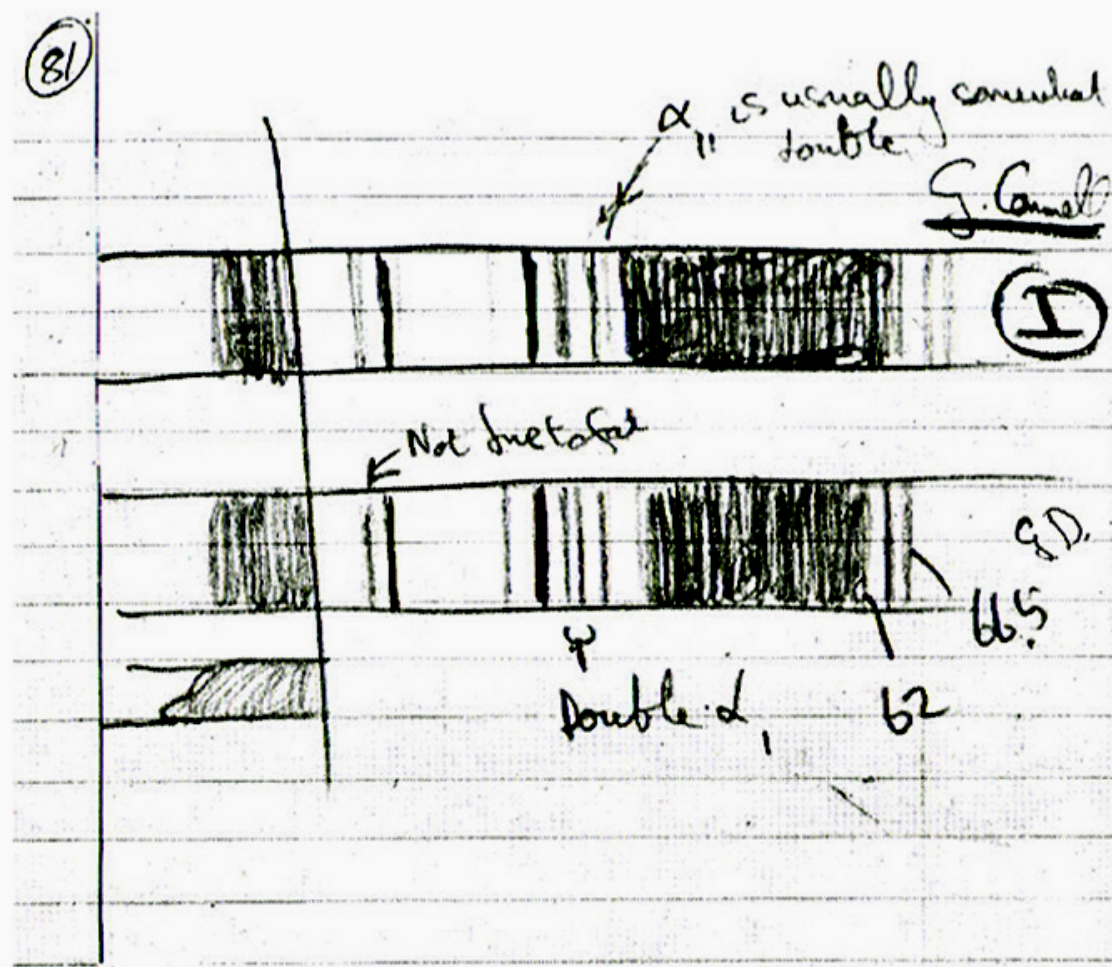 81
α,, is usually somewhat
double
G. Connell
I
Not due to fat
G.D.
66.5
Double α, 62